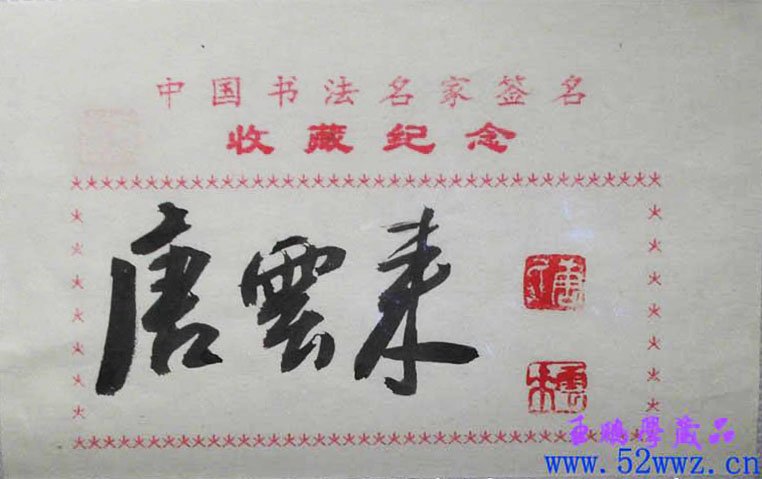 中国书法名家签名
收藏纪念
唐雲来
唐
雲来
學藏品
www.52wwz.cn